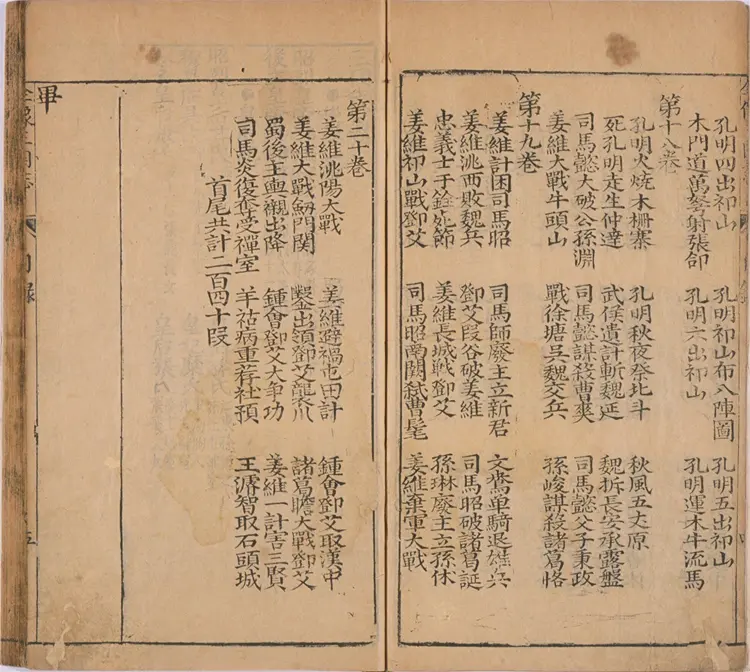 孔明四出祁山 孔明祁山布八陣圖 孔明五出祁山
木門道萬弩射張郃 孔明六出祁山 孔明運木牛流馬
第十八卷
孔明火燒木柵寨 孔明秋夜祭北斗 秋風五丈原
死孔明走生仲達 武侯遺計斬魏延 魏折長安承露盤
司馬懿大破公孫淵 司馬懿謀殺曹爽 司馬懿父子秉政
姜維大戰牛頭山 戰徐塘吳魏交兵 孫峻謀殺諸葛恪
第十九卷
姜維計困司馬昭 司馬師廢主立新君 文鴦單騎退雄兵
姜維洮西敗魏兵 鄧艾段谷破姜維 司馬昭破諸葛誕
忠義士于銓死節 姜維長城戰鄧艾 孫琳廢主立孫休
姜維祁山戰鄧艾 司馬昭南闕弒曹髦 姜維棄軍大戰
第二十卷
姜維洮陽大戰 姜維避禍屯田計 鍾會鄧艾取漢中
姜維大戰劒門関 鑿出領鄧艾襲川 諸葛瞻大戰鄧艾
蜀後主輿櫬出降 鍾會鄧艾大爭功 姜維一計害三賢
司馬炎復奪受禪室 羊祜病重荐社預 王濬智取石頭城
首尾共計二百四十段
畢
五